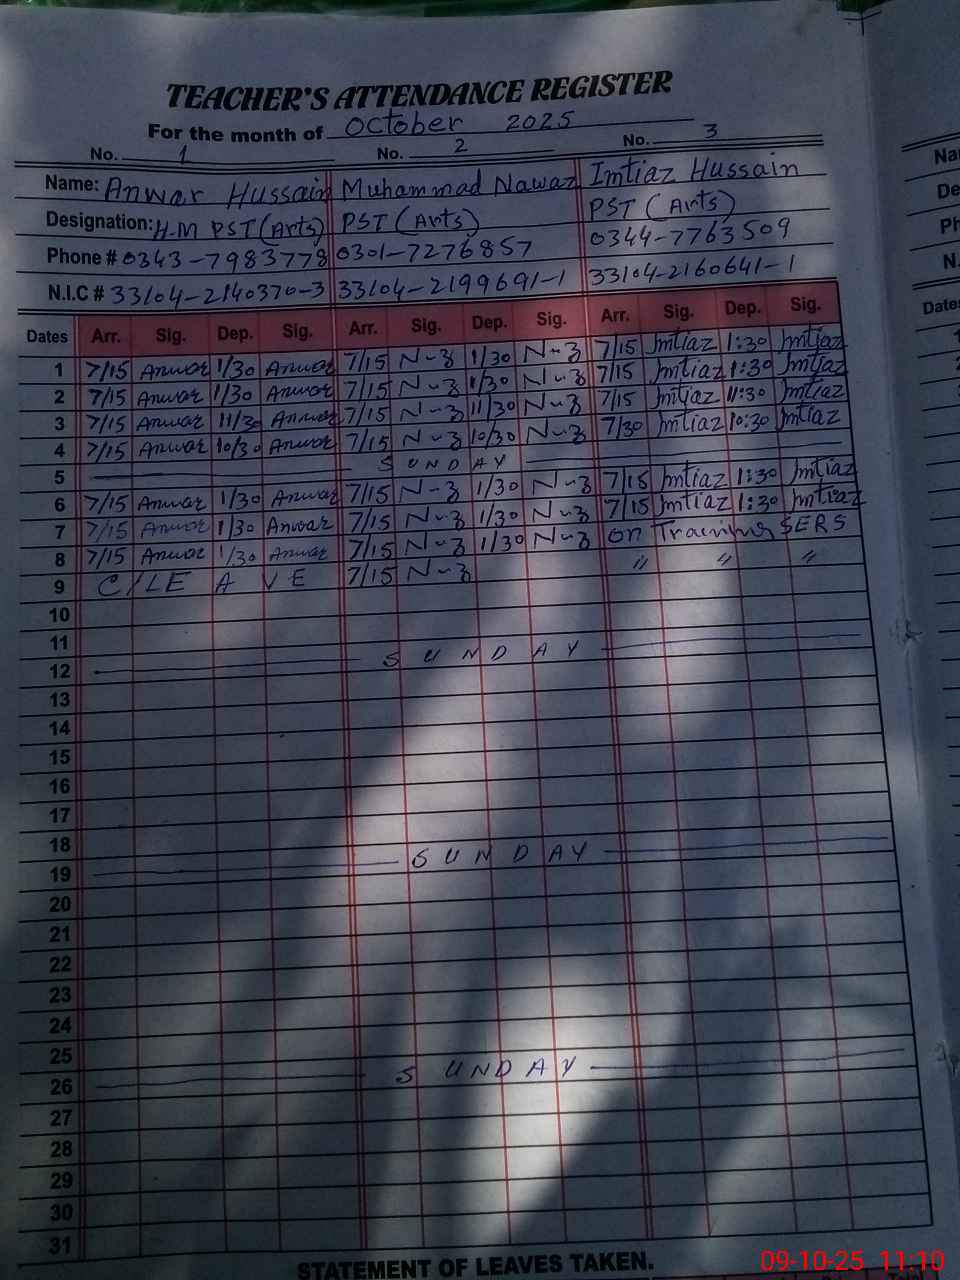 TEACHER'S ATTENDANCE REGISTER
For the month of October 2025
No. 1 No. 2 No. 3
Name: Anwar Hussain Muhammad Nawaz Imtiaz Hussain
Designation: H.M PST (Arts) PST (Arts) PST (Arts)
Phone # 0343-7983778 0301-7276857 0344-7763509
N.I.C # 33104-2140370-3 33104-2199691-1 33104-2160641-1
Dates Arr. Sig. Dep. Sig. Arr. Sig. Dep. Sig. Arr. Sig. Dep. Sig.
1 7/15 Anwar 1/30 Anwar 7/15 N-z 1/30 N-z 7/15 Imtiaz 1:30 Imtiaz
2 7/15 Anwar 1/30 Anwar 7/15 N-z 1/30 N-z 7/15 Imtiaz 1:30 Imtiaz
3 7/15 Anwar 11/30 Anwar 7/15 N-z 11/30 N-z 7/15 Imtiaz 11:30 Imtiaz
4 7/15 Anwar 10/30 Anwar 7/15 N-z 10/30 N-z 7/30 Imtiaz 10:30 Imtiaz
5 SUNDAY
6 7/15 Anwar 1/30 Anwar 7/15 N-z 1/30 N-z 7/15 Imtiaz 1:30 Imtiaz
7 7/15 Anwar 1/30 Anwar 7/15 N-z 1/30 N-z 7/15 Imtiaz 1:30 Imtiaz
8 7/15 Anwar 1/30 Anwar 7/15 N-z 1/30 N-z on Training SERS
9 C/LEAVE 7/15 N-z " " "
10
11
12 SUNDAY
13
14
15
16
17
18
19 SUNDAY
20
21
22
23
24
25
26 SUNDAY
27
28
29
30
31
STATEMENT OF LEAVES TAKEN.
09-10-25 11:10
Na
De
Ph
N.
Dates